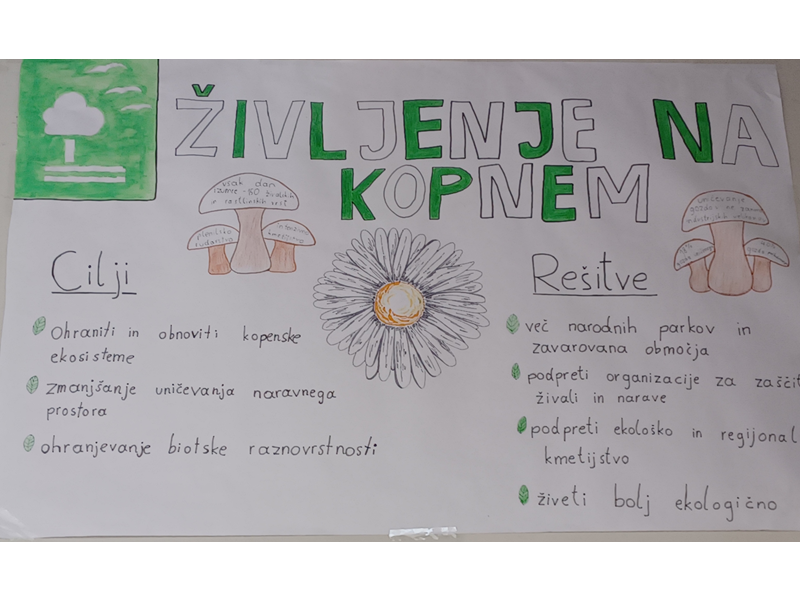 ŽIVLJENJE NA
KOPNEM
vsak dan
izumre ~80 živalskih
rastlinskih vrst
plenilsko
rudarstvo
intenzivno
kmetijstvo
uničevanje
gozdov
Cilji
Ohraniti in obnoviti kopenske
ekosisteme
zmanjšanje uničevanja naravnega
prostora
ohranjevanje biotske raznovrstnosti
Rešitve
več narodnih parkov in
zavarovana območja
podpreti organizacije za zaščit
živali in narave
podpreti ekološko in regijonal
kmetijstvo
živeti bolj ekologično